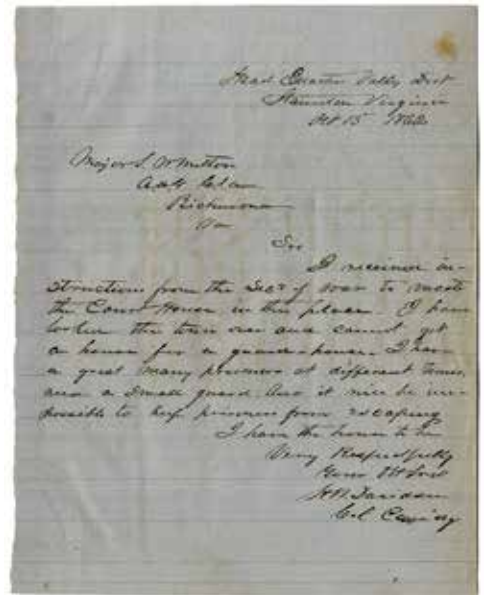 Head Quarters Valley Dist
Staunton Virginia
Oct 15 1862
Major S. W Melton
A A G
Richmond
Va
Sir
I received in-
structions from the Sec'y of war to vacate
the Court House in this place. I have
looked the town over and cannot get
a house for a guard-house. I have
a great many prisoners at different times
and a small guard. And it will be im-
possible to keep prisoners from escaping
I have the honor to be
Very Respectfully
Your Obt Svt
Davidson
Col Com'dg